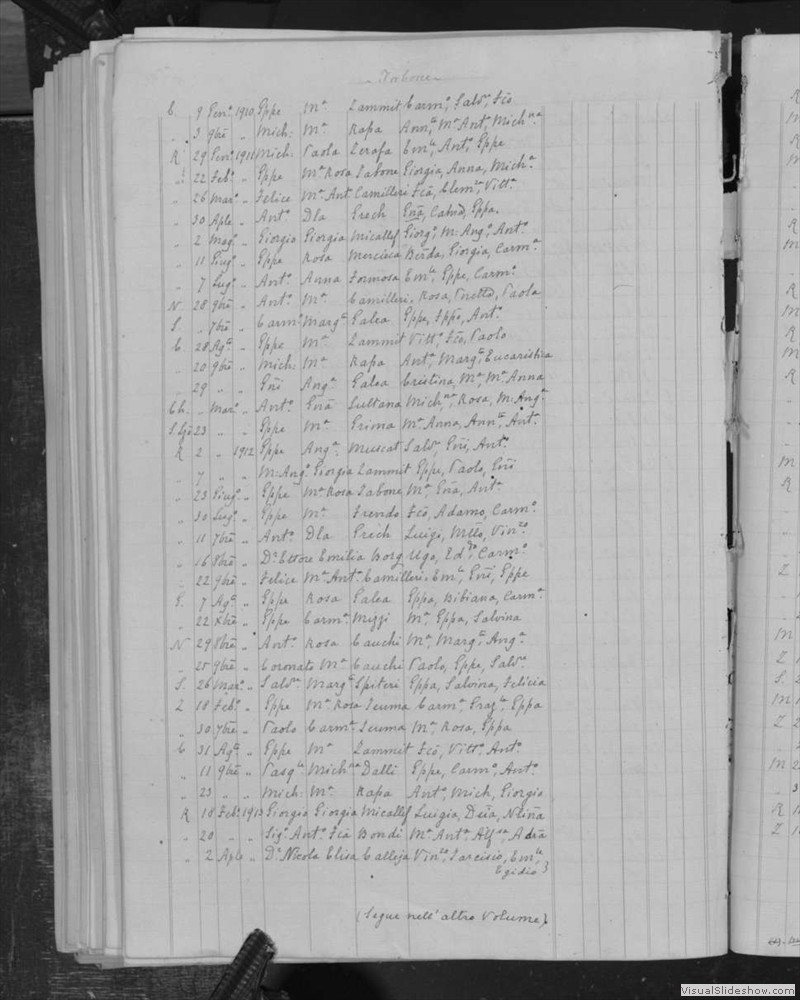 Tabone
C. 9 Gen.º 1910 Gppe M.ª Zammit Carm.º, Salv.ª, Fcõ
„ 3 9bre „ Mich: M.ª Rapa Ann.ta, M.ª Ant.ª, Mich.na
R 29 Gen.º 1911 Mich. Paola Zerafa Em.la, Ant.º, Gppe
„ 22 Feb.º „ Gppe M.ª Rosa Tabone Giorgia, Anna, Mich.ª
„ 26 Mar.º „ Felice M.ª Ant.ª Camilleri Fcã, Clem.ª, Vitt.ª
„ 30 Aple „ Ant.º Dla Grech Gnã, Catnã, Gppa.
„ 2 Mag.º „ Giorgio Giorgia Micallef Giorg.º, M: Ang.º, Ant.º
„ 11 Giug.º „ Gppe Rosa Mercieca Berda, Giorgia, Carm.ª
„ 7 Lug.º „ Ant.º Anna Formosa Em.la, Gppe, Carm.º
N. 28 9bre „ Ant.º M.ª Camilleri, Rosa, Paola
S. „ 7bre „ Carm.º Marg.ta Galea Gppe, Ant.º
C. 28 Ag.to „ Gppe M.ª Zammit Vitt.º, Fcõ, Paolo
„ 20 9bre „ Mich: M.ª Rapa Ant.ª, Marg.ta, Eucaristica
„ 29 „ „ Gnĩ Ang.ª Galea Cristina, M.ª M.ª Anna
Ch. „ Mar.º „ Ant.º Gnã Sultana Mich.na, Rosa, M: Ang.ª
23 „ „ Gppe M.ª Grima M.ª Anna, Ann.ta, Ant.º
R 2 „ 1912 Gppe Ang.ª Muscat Salv.ª, Gnĩ, Ant.º
„ 7 „ „ M: Ang.º Giorgia Zammit Gppe, Paolo, Gnĩ
„ 23 Giug.º „ Gppe M.ª Rosa Tabone M.ª, Gnã, Ant.ª
„ 30 Lug.º „ Gppe M.ª Frendo Fcõ, Adamo, Carm.º
„ 11 7bre „ Ant.º Dla Grech Luigi, Mttõ, Vin.zo
„ 16 8bre „ D.r Ettore Emilia Borg Ugo, Ed.do, Carm.º
„ 22 9bre „ Felice M.ª Ant.ª Camilleri, Em.la, Gnĩ, Gppe
G. 7 Ag.to „ Gppe Rosa Galea Gppa, Bibiana, Carm.ª
„ 22 Xbre „ Gppe Carm.ª Mizzi M.ª, Gppa, Salvina
N 29 8bre „ Ant.º Rosa Cauchi M.ª, Marg.ta, Ang.ª
„ 25 9bre „ Coronato M.ª Cauchi Paolo, Gppe, Salv.ª
S. 26 Mar.º „ Salv.ª Marg.ta Spiteri Gppa, Salvina, Felicia
Z 18 Feb.º „ Gppe M.ª Rosa Scuma Carm.ª, Graz.la, Gppa
„ 30 7bre „ Paolo Carm.ª Scuma M.ª, Rosa, Gppa
C 31 Ag.to „ Gppe M.ª Zammit Fcõ, Vitt.º, Ant.º
„ 11 9bre „ Pasq.le Mich.na Dalli Gppe, Carm.º, Ant.º
„ 23 „ „ Mich: M.ª Rapa Ant.º, Mich, Giorgio
R 18 Feb.º 1913 Giorgio Giorgia Micallef Luigia, Ntlina
„ 20 „ „ Sig.r Ant.º Fcã Bondi M.ª Ant.ª
„ 2 Aple „ D.r Nicola Elisa Calleja Vin.zo, Tarcisio, Em.le,
Egidio
(Segue nell' altro Volume)
VisualSlideshow.com